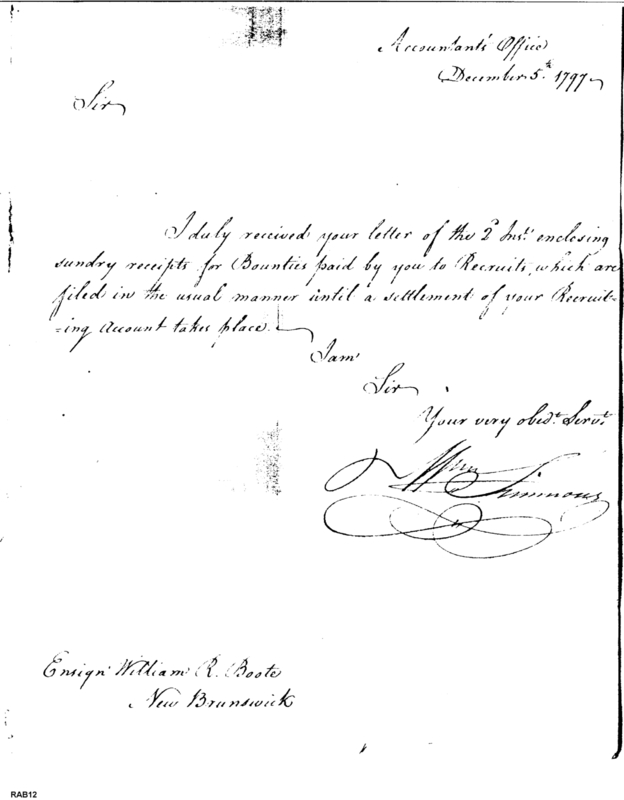 Accountant's Office
December 5th 1797
Sir
I duly received your letter of the 2d Inst. enclosing
sundry receipts for Bounties paid by you to Recruits, which are
filed in the usual manner until a settlement of your Recruit=
=ing Account takes place.
I am
Sir
Your very obedt. Servt.
Wm Simmons
Ensign William R. Boote
New Brunswick
RAB12